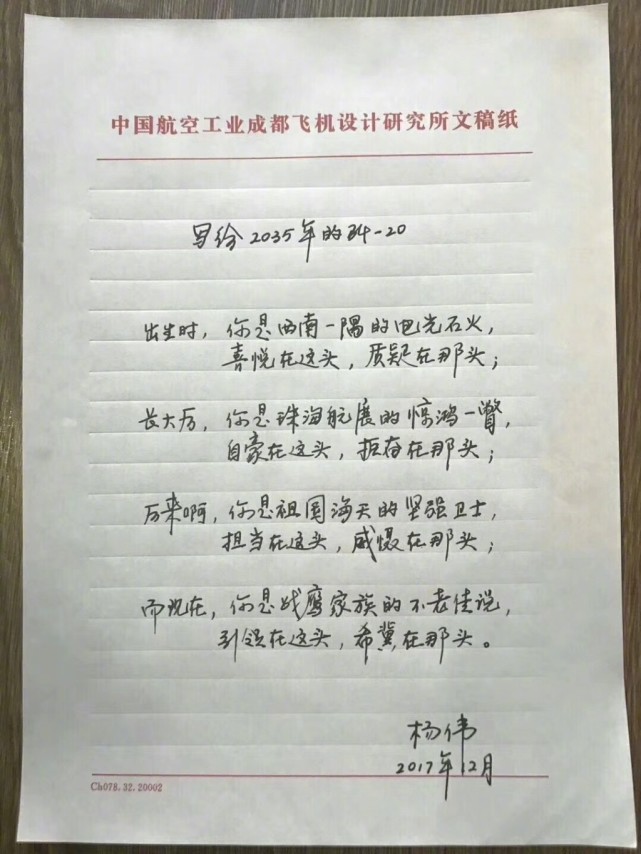 中国航空工业成都飞机设计研究所文稿纸
写给2035年的歼-20
出生时，你是西南一隅的电光石火，
喜悦在这头，质疑在那头；
长大后，你是珠海航展的惊鸿一瞥，
自豪在这头，振奋在那头；
后来啊，你是祖国海天的坚强卫士，
担当在这头，威慑在那头；
而现在，你是战鹰家族的不老传说，
引领在这头，希冀在那头。
杨伟
2017年12月
Ch078.32.20002